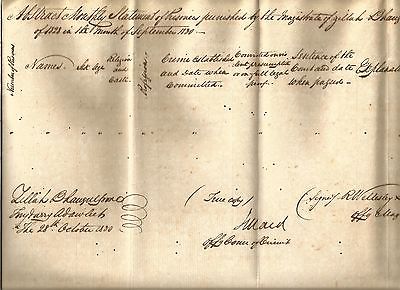 Abstract Monthly Statement of Prisoners punished by the Magistrate of Zillah Bhaug
of 1828 in the Month of September 1830
Number of Prisoners
Names
Age
Religion
and
Caste
Crime established
and date when
Committed
Convicted on
but presumptive
or full legal
proof
Sentence of the
date
when passed
Explanat
Zillah Bhaugulpore
Foujdarry Adawlut
The 28th October 1830
(True Copy)
Offg Comr of Circuit
(Signed) R Wellesley
Offg Mag